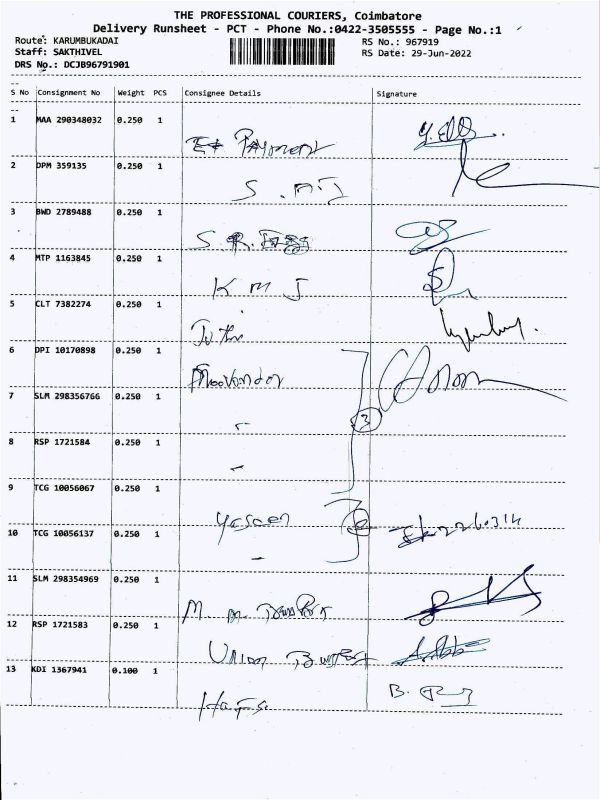 THE PROFESSIONAL COURIERS, Coimbatore
Delivery Runsheet - PCT - Phone No.:0422-3505555 - Page No.:1
Route: KARUMBUKADAI
RS No.: 967919
Staff: SAKTHIVEL
RS Date: 29-Jun-2022
DRS No.: DCJB96791901
S No Consignment No Weight PCS Consignee Details Signature
1 MAA 290348032 0.250 1
Payment
2 DPM 359135 0.250 1
S.
3 BWD 2789488 0.250 1
S. R.
4 MTP 1163845 0.250 1
K M J
5 CLT 7382274 0.250 1
6 DPI 10170898 0.250 1
7 SLM 298356766 0.250 1
3
8 RSP 1721584 0.250 1
9 TCG 10056067 0.250 1
Yaseen
10 TCG 10056137 0.250 1
11 SLM 298354969 0.250 1
M M
12 RSP 1721583 0.250 1
Union
13 KDI 1367941 0.100 1
B.